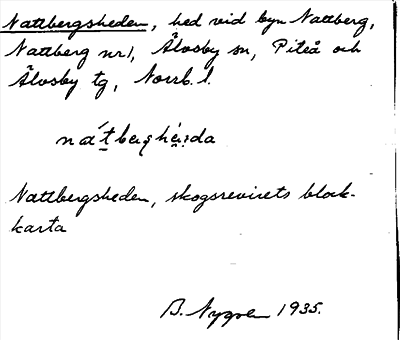 Nattbergsheden, hed vid byn Nattberg,
Nattberg nr 1, Älvsby sn, Piteå och
Älvsby tg, Norrb. l.
nátberghé̱ːda
Nattbergsheden, skogsrevirets block-
karta
B. Nygren 1935.